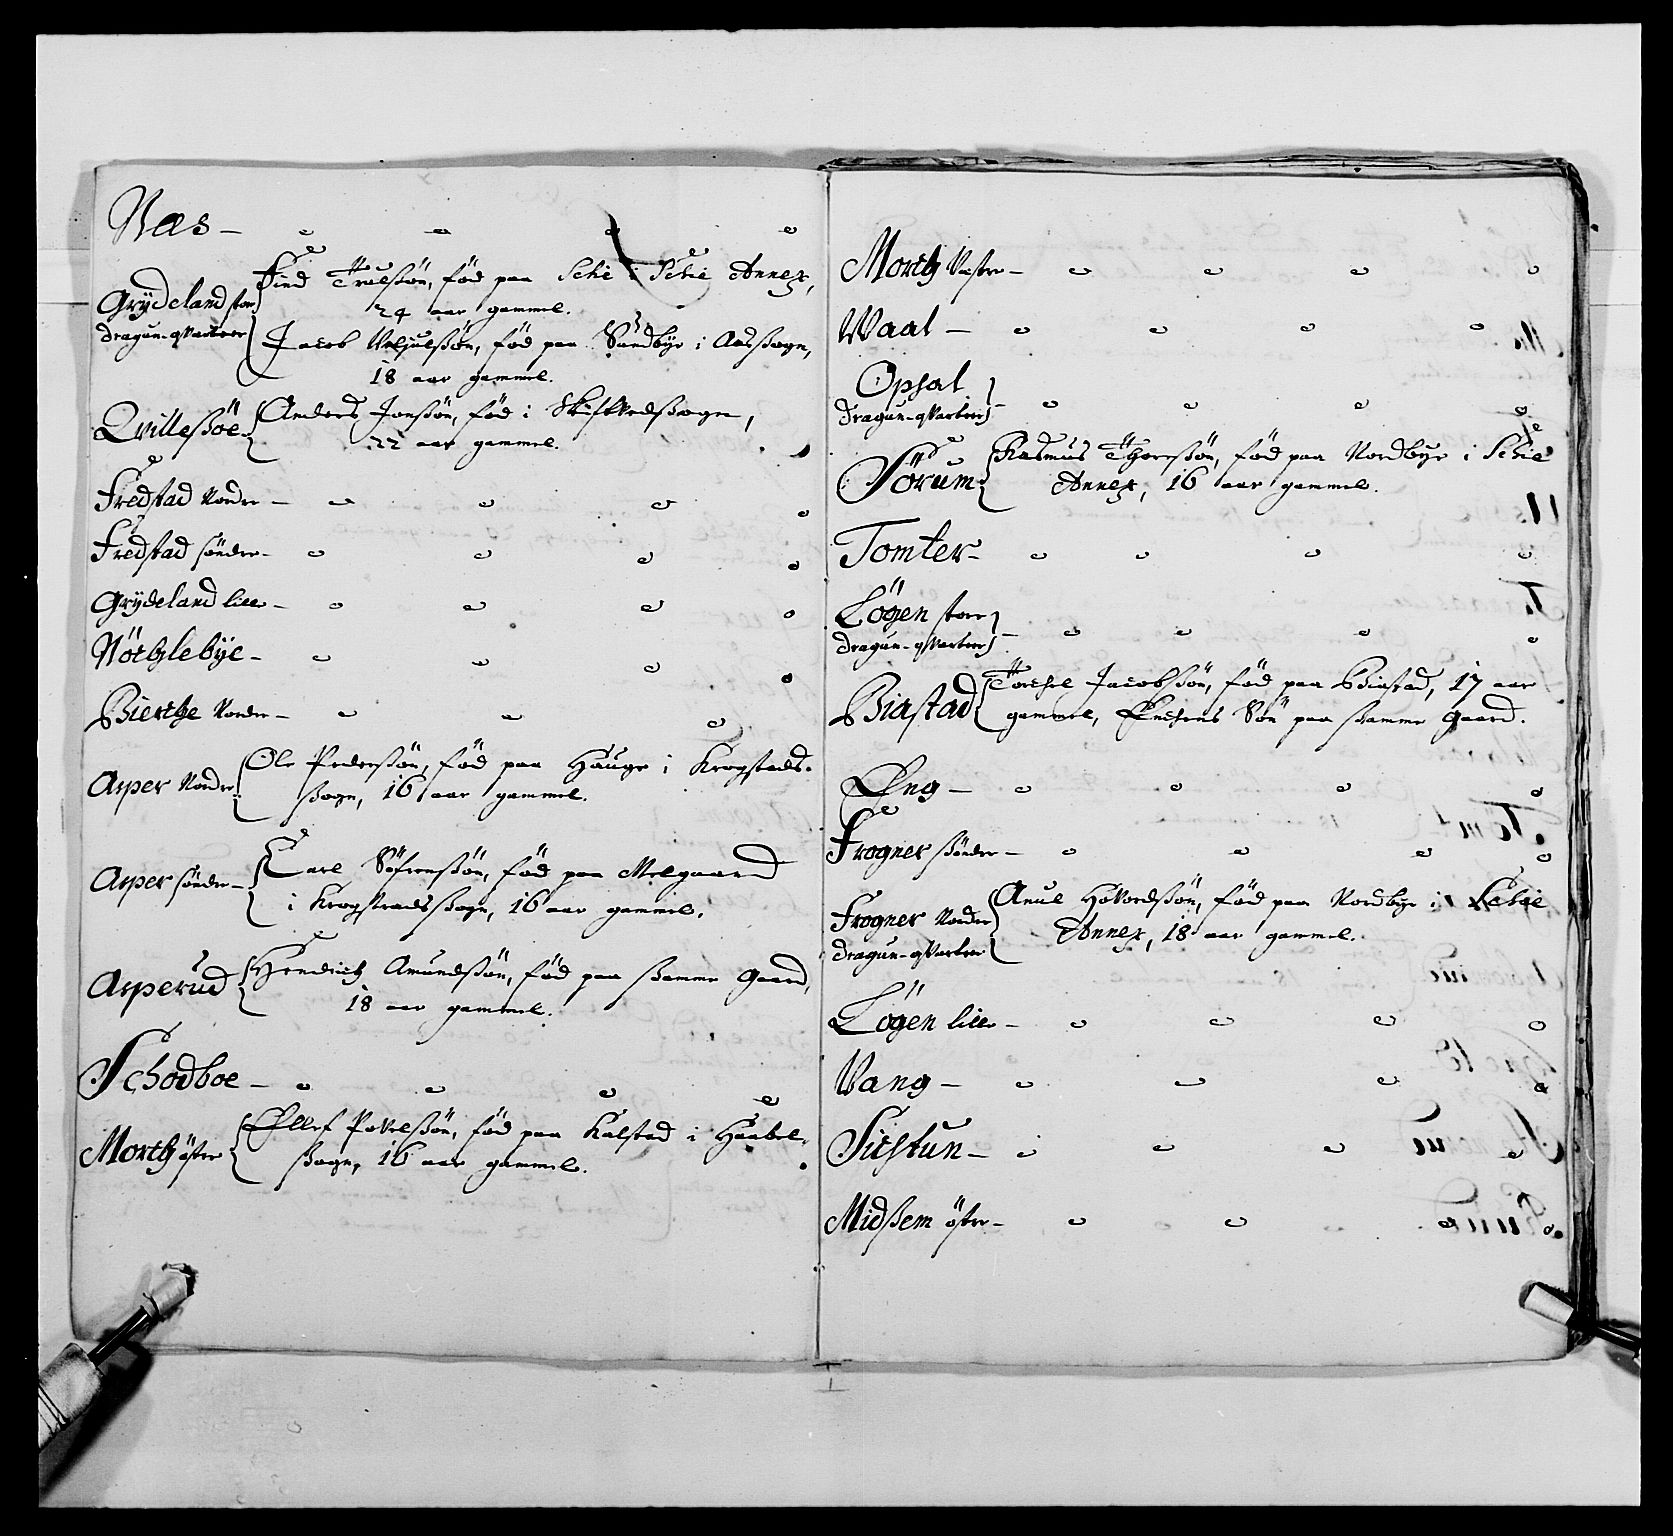 Næs –
Grÿdeland store
Dragun-qvarteer
Find Trulssön, föd paa Schie i Schie Annex,
24 aar gammel.
Jacob Veljulssön, föd paa Sundbye i Aassogn,
18 aar gammel.
Qvillessöe
Anders Jonssön, föd i Skiftvedssogn,
22 aar gammel.
Fredstad Nordre –
Fredstad sönder –
Grÿdeland lille –
Nöchlebÿe –
Bierche Nordre –
Asper Nordre
Ole Pederssön, föd paa Hauge i Krogstads-
sogn, 16 aar gammel.
Asper sönder –
Carl Söfrenssön, föd paa Melgaard
i Krogstadssogn, 16 aar gammel.
Asperud
Hendrich Amundssön, föd paa samme Gaard,
18 aar gammel.
Schodboe –
Morch öster
Ellef Povelssön, föd paa Kalstad i Haabel-
sogn, 16 aar gammel.
Morch Vester –
Waal –
Opsal
Dragun-qvarteer –
Sörum
Rasmus Thorssön, föd paa Nordbye i Schie
Annex, 16 aar gammel.
Tomter –
Lögen store
Dragun-qvarteer –
Biastad
Torchel Jacobssön, föd paa Biastad, 17 aar
gammel, Enchens Sön paa samme Gaard.
Eng –
Frogner sönder –
Frogner Nordre
Dragun-qvarteer
Anul Hovordssön, föd paa Nordbye i Schie
Annex, 18 aar gammel.
Lögen lille –
Vang –
Sichtun –
Midsem öster –